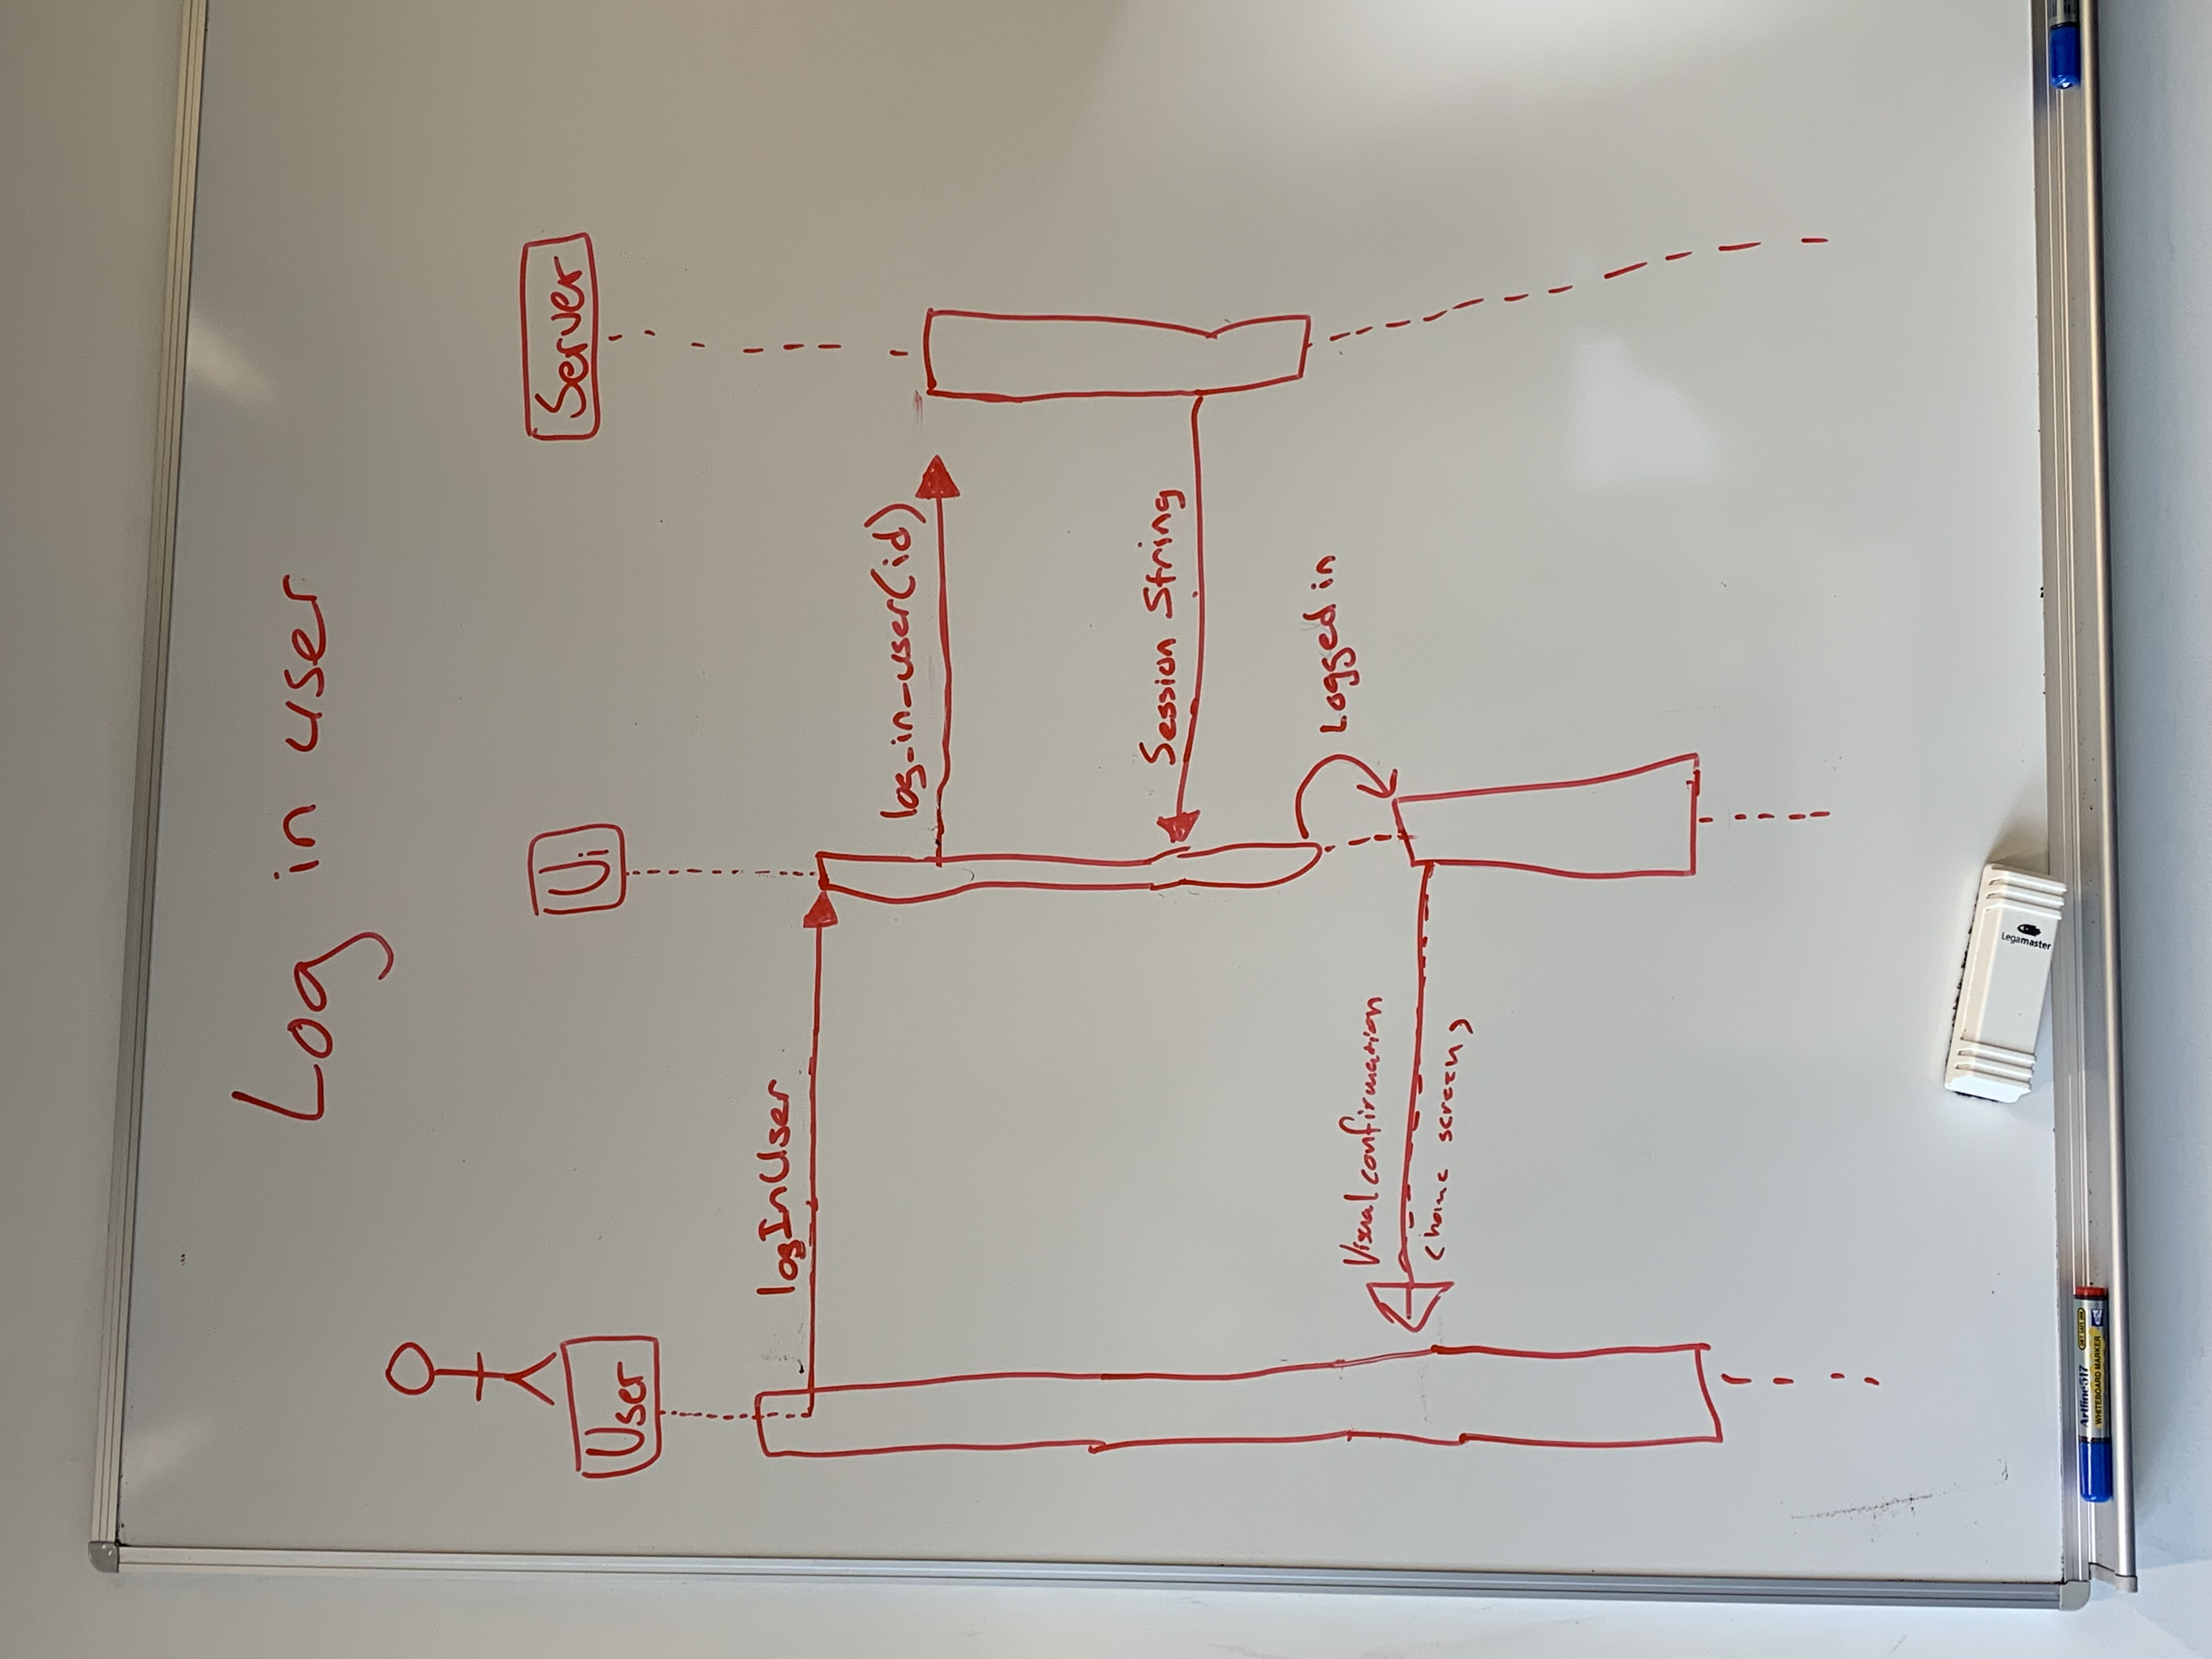 Log in user
User
Ui
Server
logInUser
log_in_user(id)
Session String
Logged in
Visual confirmation
(home screen)
Legamaster
Artline 517
DRY SAFE INK
WHITEBOARD MARKER